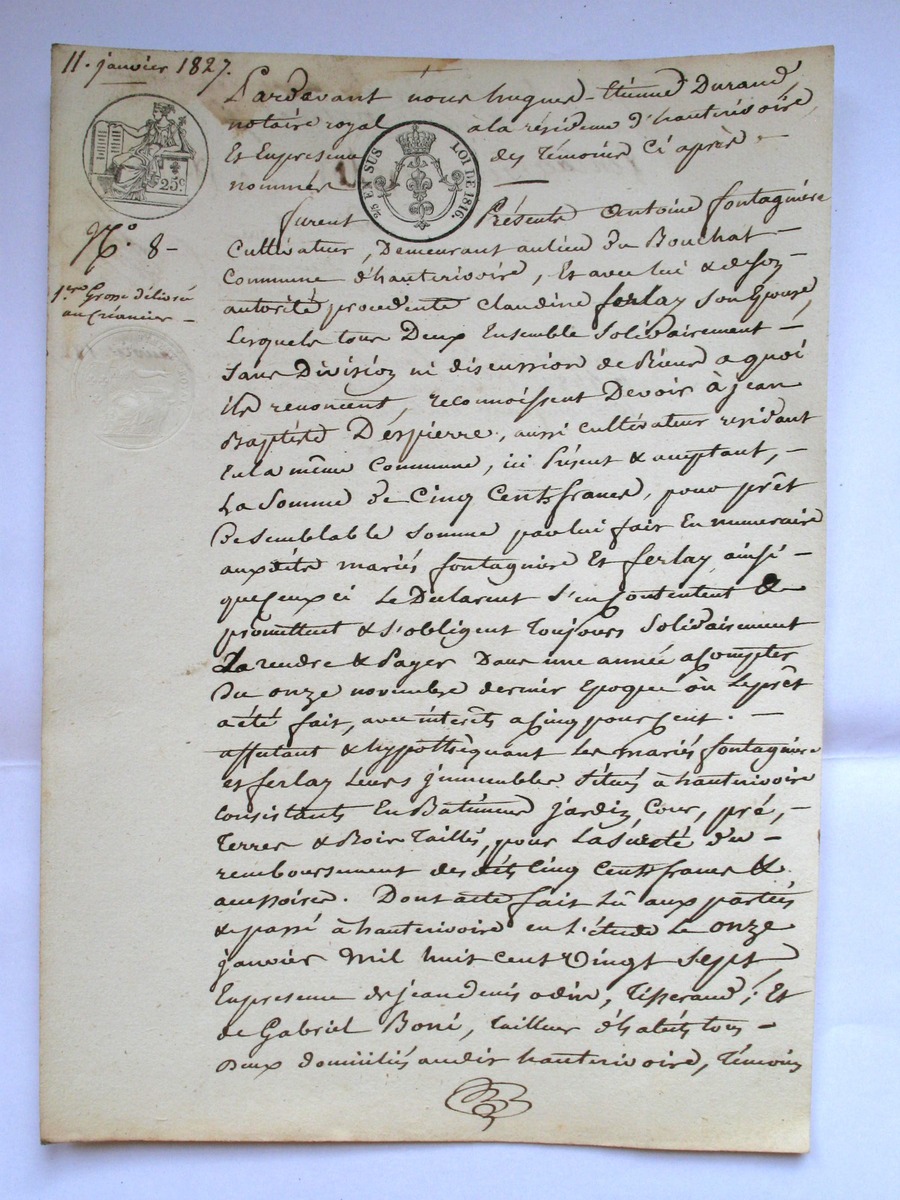 11. janvier 1827.
Pardevant nous hugues-étienne Durand
notaire royal à la résidence d'hauterivoire,
Et En presence des témoins ci après
nommés
25c
25 EN SUS LOI DE 1816.
N.o 8-
1ere Grosse délivré
au créancier-
furent Présents antoine fontagnière
Cultivateur, Demeurant au lieu du Bouchat
Commune d'hauterivoire, Et avec lui & de son
autorité procedente claudine ferlay son Epouse
Lesquels tous Deux Ensemble Solidairement-
Sans Division ni discussion de Biens a quoi
ils renoncent, reconnoissent Devoir à jean
Baptiste Despierre, aussi cultivateur residant
En la même Commune, ici Présent & acceptant,-
La Somme de Cinq Cents francs, pour prêt
De semblable somme par lui fait En numeraire
auxdits mariés fontagnière Et ferlay ainsi-
que Ceux ci Le Déclarent S'en Contentent &
promettent & S'obligent toujours Solidairement
La rendre & Payer Dans une année a Compter
Du onze novembre dernier Epoque où Le prêt
a été fait, avec intérêts a Cinq pour Cent.-
affectant & hypothéquant Les mariés fontagnière
et ferlay Leurs immeubles Situés à hauterivoire
Consistants En Batiments jardin, Cour, pré,-
Terres & Bois Taillis, pour La Sureté du-
remboursement des dits Cinq Cents francs &
accessoires. Dont acte fait Lû aux parties
& passé à hauterivoire en l'étude Le onze
janvier Mil huit cent Vingt Sept
En presence de jean denis , Tisserand; Et
de Gabriel Boni, tailleur d'habits tous-
Deux domiciliés audit hauterivoire, Témoins